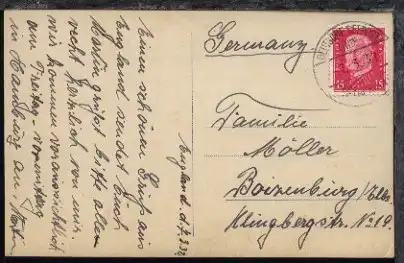 England d. 7.3.32
Einen schönen Gruß aus
England sendet Euch
Martin grüßt bitte alle
recht herzlich von mir.
wir kommen voraussichtlich
am Freitag vormittag
in Hamburg an Martin
(Germany)
Familie
Möller
Boizenburg/Elbe
Klingbergstr. No 19.
DEUTSCHES REICH
15 15